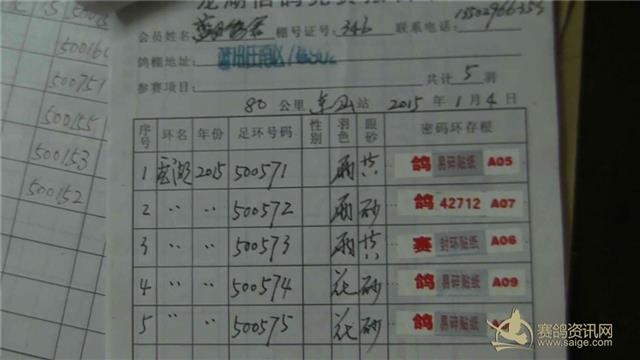 500751
500155
500153
500152
会员姓名: 棚号证号: 346 联系电话:
鸽棚地址:
参赛项目: 共计 5 羽
80 公里 站 2015 年 1 月 4 日
序号 环名 年份 足环号码 性别 羽色 眼砂 密码环存根
1 2015 500571 雨 黄 鸽 易碎贴纸 A05
2 〃 〃 500572 雨 砂 鸽 42712 A07
3 〃 〃 500573 雨 黄 赛 封环贴纸 A06
4 〃 〃 500574 花 砂 鸽 易碎贴纸 A09
5 〃 〃 500575 花 砂 鸽 易碎贴纸
赛鸽资讯网
www.saige.com